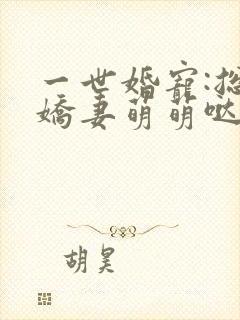 一世婚宠:总
娇妻萌萌哒
胡昊